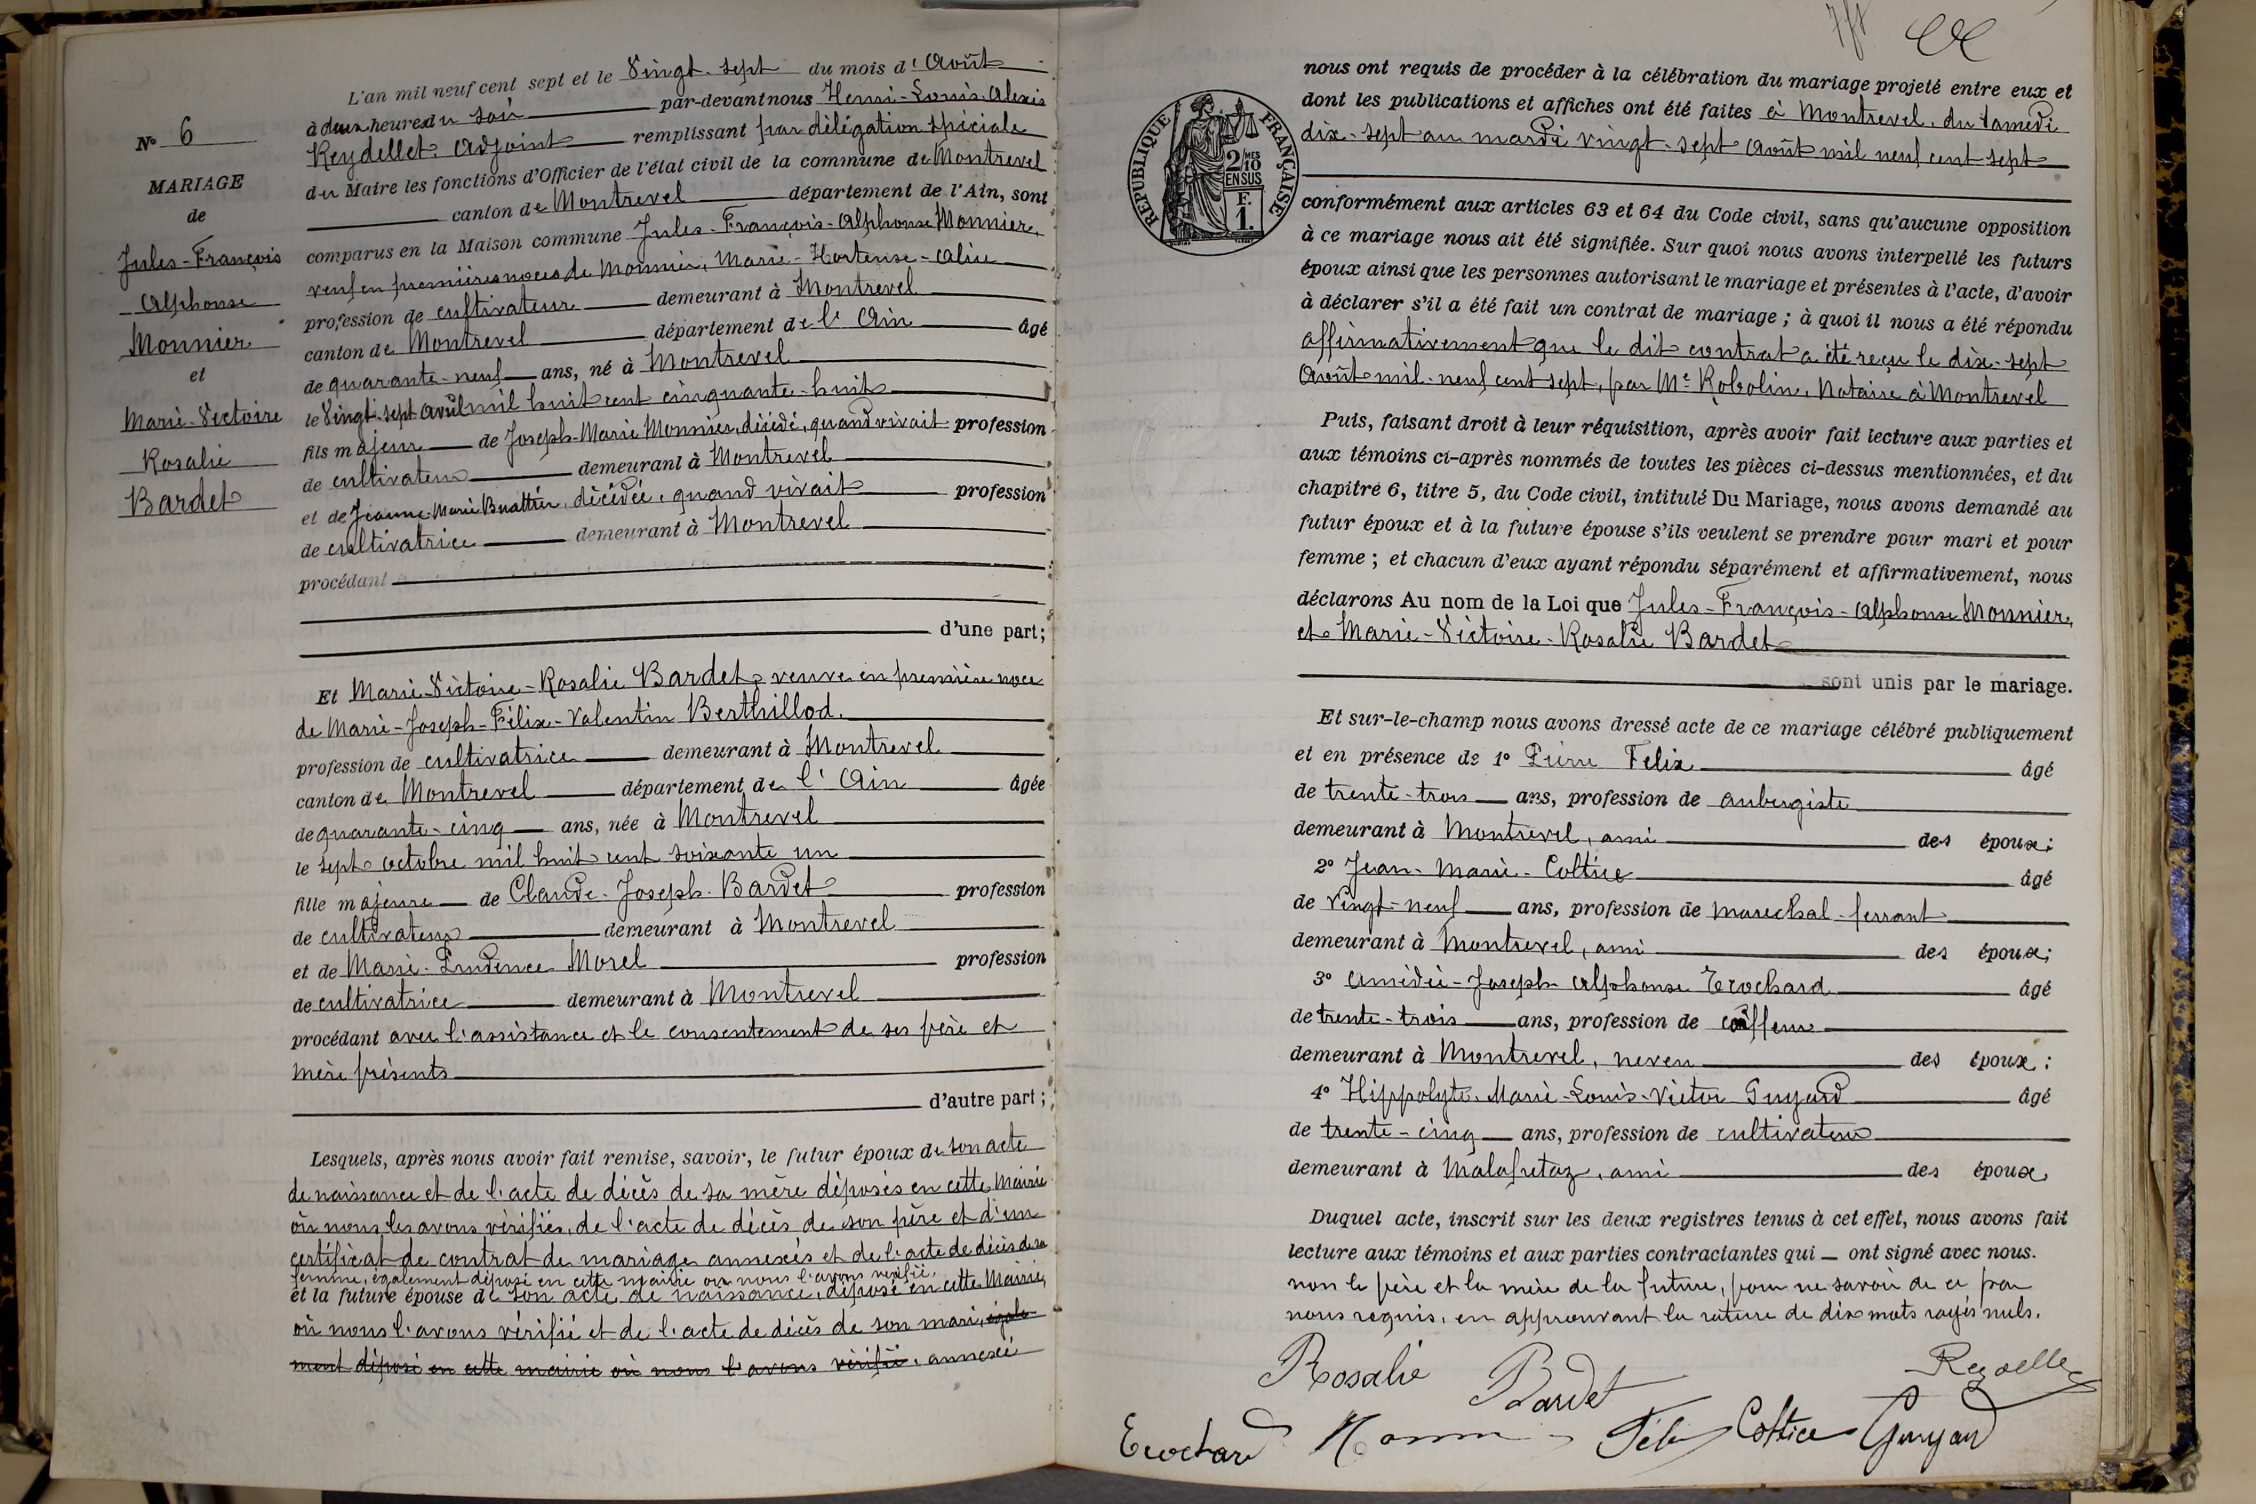 L'an mil neuf cent sept et le Vingt-sept du mois d'Août
à deux heures du soir par-devant nous Henri-Louis-Alexis
Reydellet, Adjoint remplissant par délégation spéciale
du Maire les fonctions d'Officier de l'état civil de la commune de Montrevel
canton de Montrevel département de l'Ain, sont
comparus en la Maison commune Jules-François-Alphonse Monnier,
veuf en premières noces de Monnier, Marie-Hortense-Aline
profession de cultivateur demeurant à Montrevel
canton de Montrevel département de l'Ain âgé
de quarante-neuf ans, né à Montrevel
le Vingt-sept avril mil huit cent cinquante-huit
fils majeur de Joseph-Marie Monnier, décédé, quand vivait profession
de cultivateur demeurant à Montrevel
et de Jeanne-Marie Buattier, décédée, quand vivait profession
de cultivatrice demeurant à Montrevel
procédant
d'une part;
Et Marie-Victoire-Rosalie Bardet, veuve en première noce
de Marie-Joseph-Félix-Valentin Berthillod.
profession de cultivatrice demeurant à Montrevel
canton de Montrevel département de l'Ain âgée
de quarante-cinq ans, née à Montrevel
le sept octobre mil huit cent soixante un
fille majeure de Claude-Joseph Bardet profession
de cultivateur demeurant à Montrevel
et de Marie-Prudence Morel profession
de cultivatrice demeurant à Montrevel
procédant avec l'assistance et le consentement de ses père et
mère présents
d'autre part;
Lesquels, après nous avoir fait remise, savoir, le futur époux de son acte
de naissance et de l'acte de décès de sa mère déposés en cette Mairie
où nous les avons vérifiés, de l'acte de décès de son père et d'un
certificat de contrat de mariage annexés et de l'acte de décès de sa
femme, également déposé en cette mairie où nous l'avons vérifié,
et la future épouse de son acte de naissance, déposé en cette Mairie,
où nous l'avons vérifié et de l'acte de décès de son mari, égale-
ment déposé en cette mairie où nous l'avons vérifié, annexé
No 6
MARIAGE
de
Jules-François
Alphonse
Monnier
et
Marie-Victoire
Rosalie
Bardet
RÉPUBLIQUE FRANÇAISE
2/10 MES
EN SUS
F.
1.
nous ont requis de procéder à la célébration du mariage projeté entre eux et
dont les publications et affiches ont été faites à Montrevel, du samedi
dix-sept au mardi vingt-sept août mil neuf cent sept
conformément aux articles 63 et 64 du Code civil, sans qu'aucune opposition
à ce mariage nous ait été signifiée. Sur quoi nous avons interpellé les futurs
époux ainsi que les personnes autorisant le mariage et présentes à l'acte, d'avoir
à déclarer s'il a été fait un contrat de mariage; à quoi il nous a été répondu
affirmativement que le dit contrat a été reçu le dix-sept
Août mil-neuf cent sept, par Me Robolin, Notaire à Montrevel
Puis, faisant droit à leur réquisition, après avoir fait lecture aux parties et
aux témoins ci-après nommés de toutes les pièces ci-dessus mentionnées, et du
chapitre 6, titre 5, du Code civil, intitulé Du Mariage, nous avons demandé au
futur époux et à la future épouse s'ils veulent se prendre pour mari et pour
femme; et chacun d'eux ayant répondu séparément et affirmativement, nous
déclarons Au nom de la Loi que Jules-François-Alphonse Monnier,
et Marie-Victoire-Rosalie Bardet
sont unis par le mariage.
Et sur-le-champ nous avons dressé acte de ce mariage célébré publiquement
et en présence de 1° Pierre Felix âgé
de trente-trois ans, profession de aubergiste
demeurant à Montrevel, ami des époux;
2° Jean-Marie-Coltice âgé
de vingt-neuf ans, profession de marechal-ferrant
demeurant à Montrevel, ami des époux;
3° Amédée-Joseph-Alphonse Ecochard âgé
de trente-trois ans, profession de coiffeur
demeurant à Montrevel, neveu des époux;
4° Hippolyte-Marie-Louis-Victor Guyard âgé
de trente-cinq ans, profession de cultivateur
demeurant à Malafretaz, ami des époux,
Duquel acte, inscrit sur les deux registres tenus à cet effet, nous avons fait
lecture aux témoins et aux parties contractantes qui ont signé avec nous.
non le père et la mère de la future, pour ne savoir de ce par
nous requis, en approuvant la rature de dix mots rayés nuls.
Rosalie Bardet Reydellet
Ecochard Monnier Félix Coltice Guyard